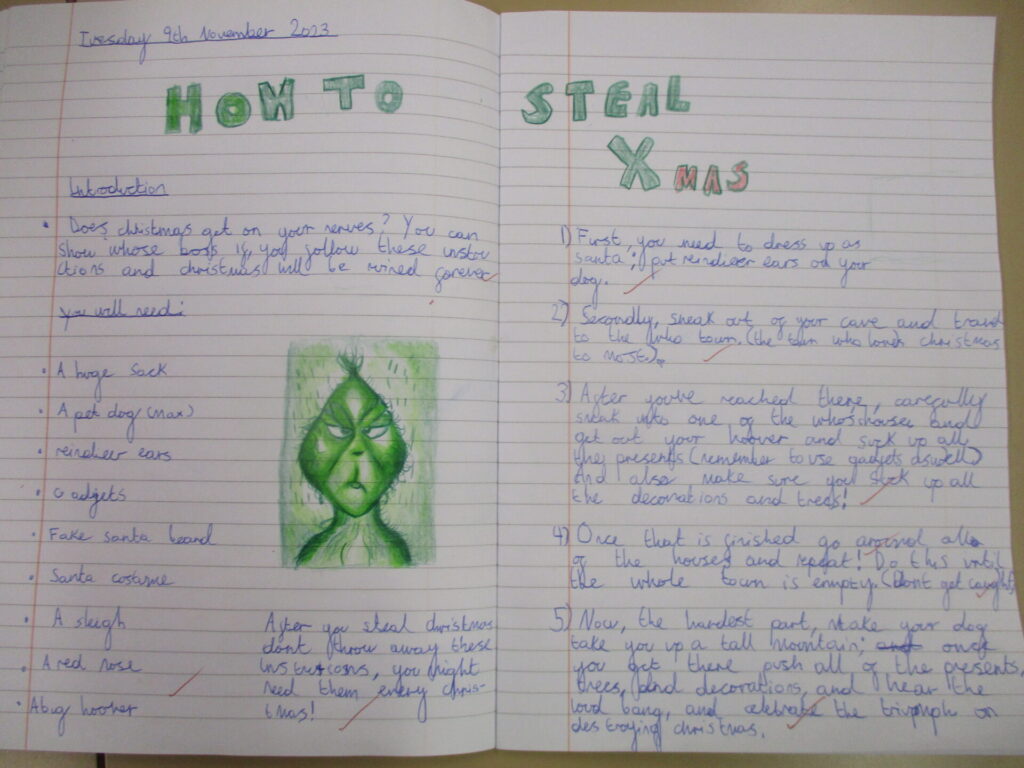 Tuesday 9th November 2023
HOW TO STEAL
XMAS
Introduction
• Does christmas get on your nerves? You can
show whose boss if you follow these instru
ctions and christmas will be ruined forever
you will need:
• A huge sack
• A pet dog (max)
• reindieer ears
• Gadgets
• Fake santa beard
• Santa costume
• A sleigh
• A red nose
• A big hoover
After you steal christmas
dont throw away these
instructions, you might
need them every chris-
tmas!
1) First, you need to dress up as
santa; put reindieer ears on your
dog.
2) Secondly, sneak out of your cave and travel
to the who town. (the town who loves christmas
to most).
3) After you've reached there, carefully
sneak into one of the who's houses and
get out your hoover and suck up all
they presents (remember to use gadgets aswell)
and also make sure you suck up all
the decorations and trees!
4) Once that is finished go around all
of the houses and repeat! Do this until
the whole town is empty. (Dont get caught)
5) Now, the hardest part, make your dog
take you up a tall mountain; and once
you get there push all of the presents,
trees, and decorations, and hear the
loud bang, and celebrate the triumph on
destroying christmas.